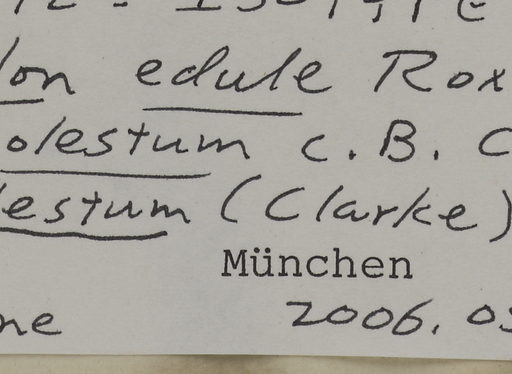 on edule Rox
olestum C. B. C
estum (Clarke)
München
ne 2006. 05